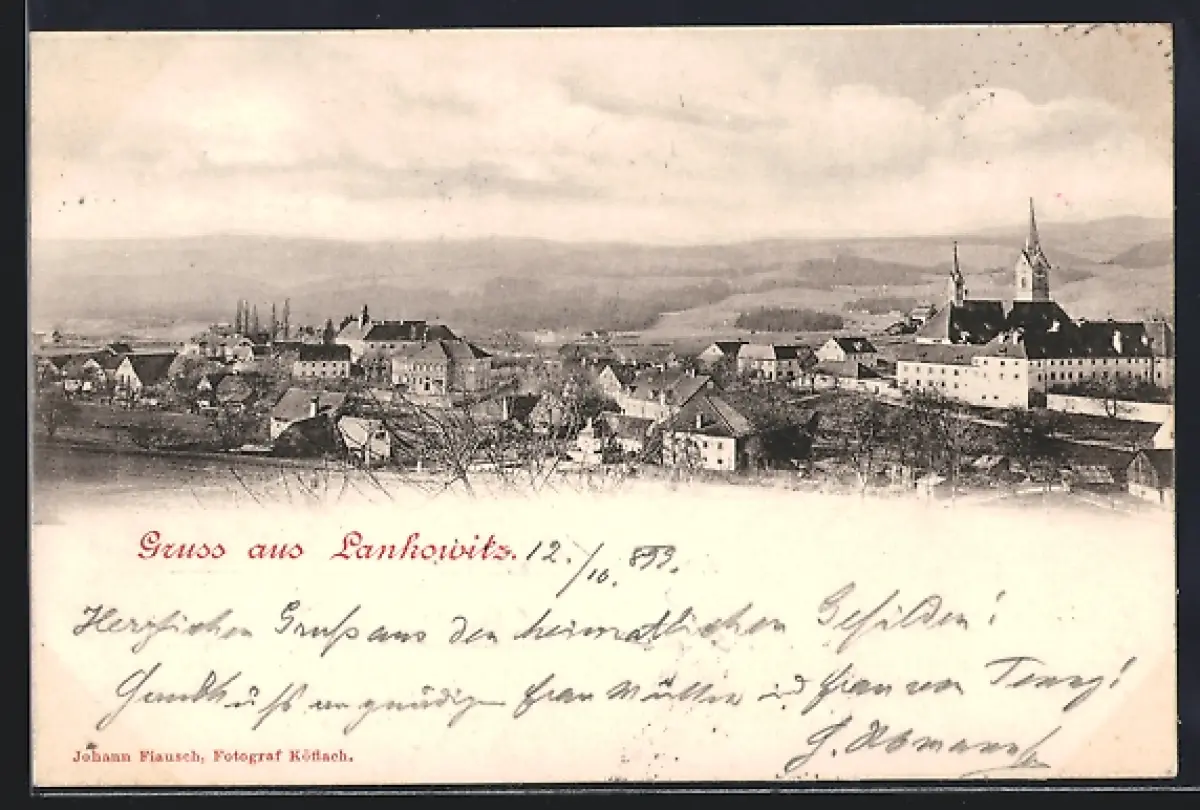 Gruss aus Lankowitz. 12./10. 899.
Herzlichen Gruß aus den heimatlichen Gefilden!
Handkuß an gnädige Frau Mutter und Frau von
Johann Flausch, Fotograf Köflach.